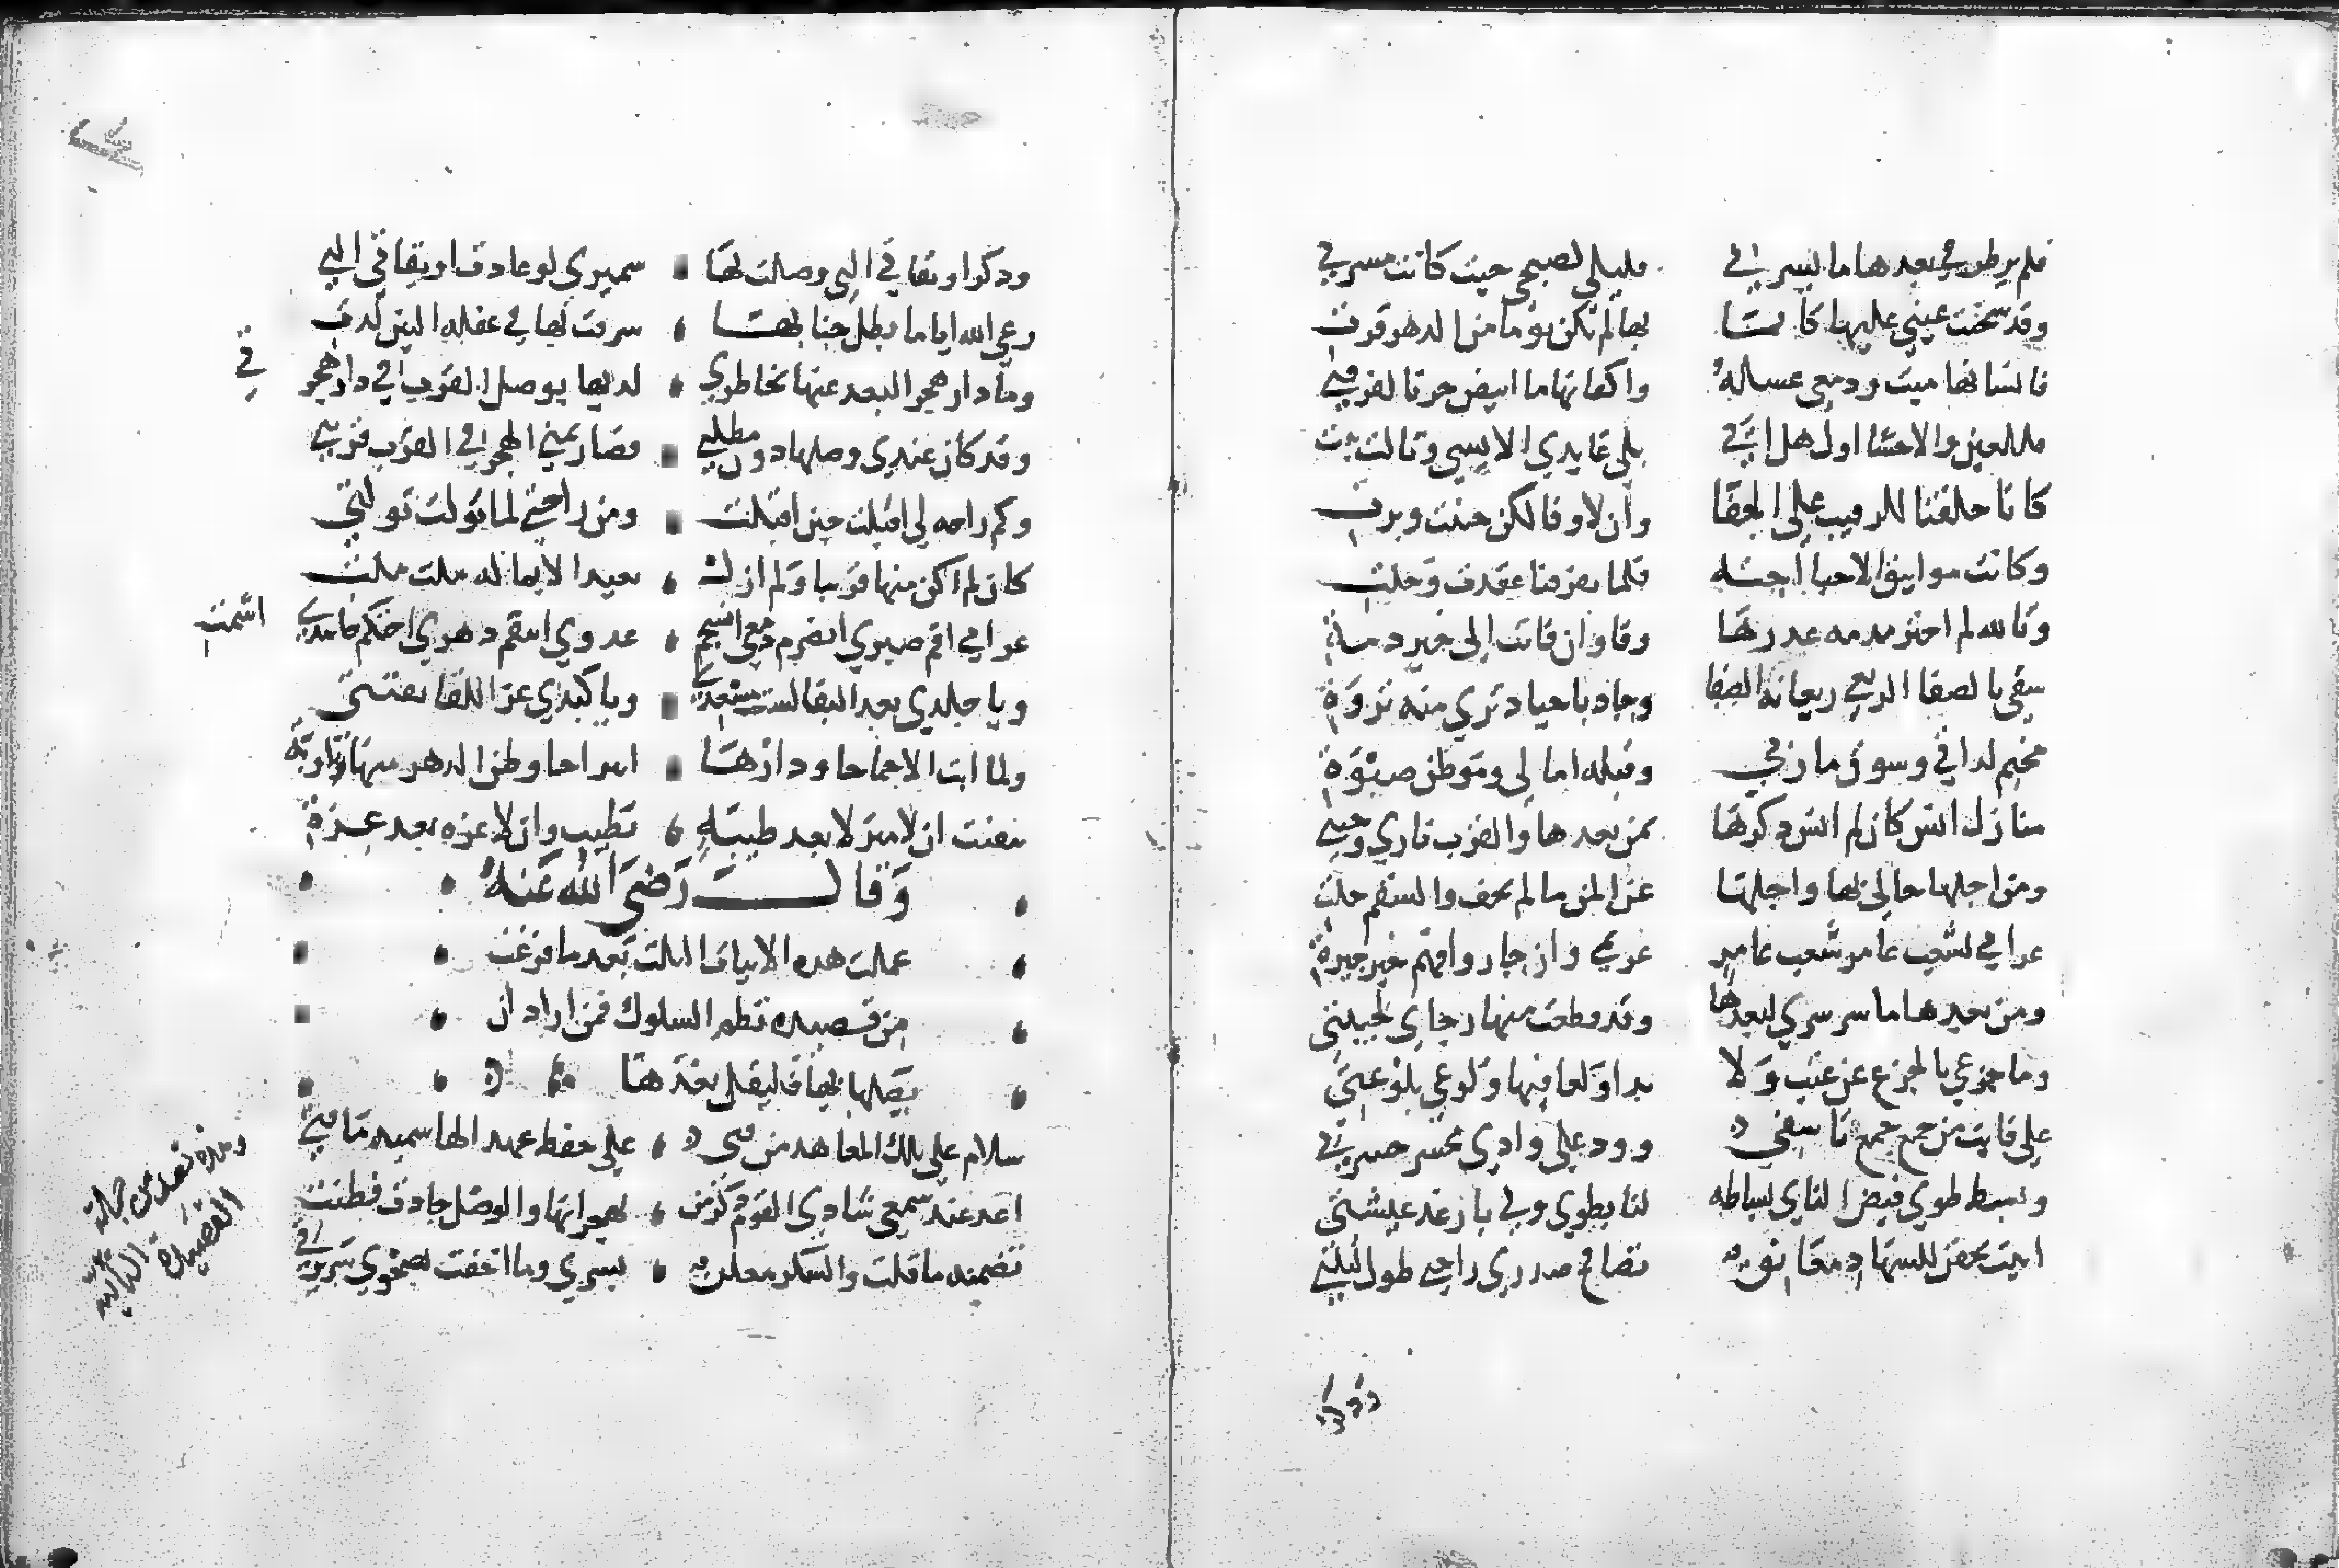 فلم يرطرفي بعدها ما يسرني فليلي لصبحي حيث كانت مسرتي
وقد سخنت عيني عليها كانها بها لم تكن يوما من الدهر قرت
فانسانها ميت ودمعي غسله واكفانها ما ابيض حزنا لفرقتي
فللعين والاحشا اول هل اتى تلى عايدي الاسي وثالث تبت
كانا حلفنا للرقيب على الجفا وان لا وفا لكن حنثت وبرت
وكانت مواثيق الاخا اخية فلما تفرقنا عقدت وحلت
وتالله لم اختر مذمة غدرها وفا وان فاءت الى ختر ذمة
سقى بالصفا الربعي ربعا به الصفا وجاد باجياد ثرى منه ثروة
مخيم لذاتي وسوق ماربي وقبلة امالي وموطن صبوة
منازل انس كان لم انس ذكرها بمن بعدها والقرب ناري وجنتي
ومن اجلها حالي بها واجلها عن المن ما لم تخف والسقم حلتي
غرامي لشعب عامر شعب عامر غريمي وان جاروا فهم خير جيرة
ومن بعدها ما سر سري لبعدها وقد قطعت منها رجاي لخيبتي
وما جزعي بالجزع عن عبث ولا بدا ولعا فيها ولوعي بلوعتي
على فايت من جمع جمع تاسفي وود على وادي محسر حسرتي
وبسط طوى قبض التنائي بساطه لنا بطوى ولى بارغد عيشتي
ابيت بجفن للسهاد معانق تصافح صدري راحتي طول ليلتي
وذكر
وذكر اويقاتي التي وصلت بها سميري لو عادت اويقاتي التي
رعى الله اياما بظل جنابها سرقت بها في غفلة البين لذتي
وما دار هجر البعد عنها بخاطري لديها بوصل القرب في دار هجرتي
وقد كان عندي وصلها دون مطلبي فصار تمني الهجر في القرب قربتي
وكم راحة لي اقبلت حين اقبلت ومن راحتي لما تولت تولت
كان لم اكن منها قريبا ولم ازل بعيدا لاي ما له ملت ملت
غرامي اقم صبري انصرم دمعي انسجم عدوي انتقم دهري احتكم حاسدي اشمت
ويا جلدي بعد النقا لست مسعدي ويا كبدي عز اللقا تفتتي
ولما ابت الا جماحا ودارها انتزاحا وضن الدهر منها باوبة
تيقنت ان لا منزلا بعد طيبة تطيب وان لا عزة بعد عزة
وقال رضي الله عنه
عملت هذه الابيات الثلث بعد ما فرغت
من قصيدة نظم السلوك فمن اراد ان
يصلها بها فليقل بعدها
سلام على تلك المعاهد من فتى على حفظ عهد العامرية ما فتي
اعد عند سمعي شادي القوم ذكر من بهجرانها والوصل جادت وضنت
تضمنه ما قلت والسكر معلن لسري وما اخفت لصحوي سريرتي
وهذه تعد من جملة
القصيدة التائية